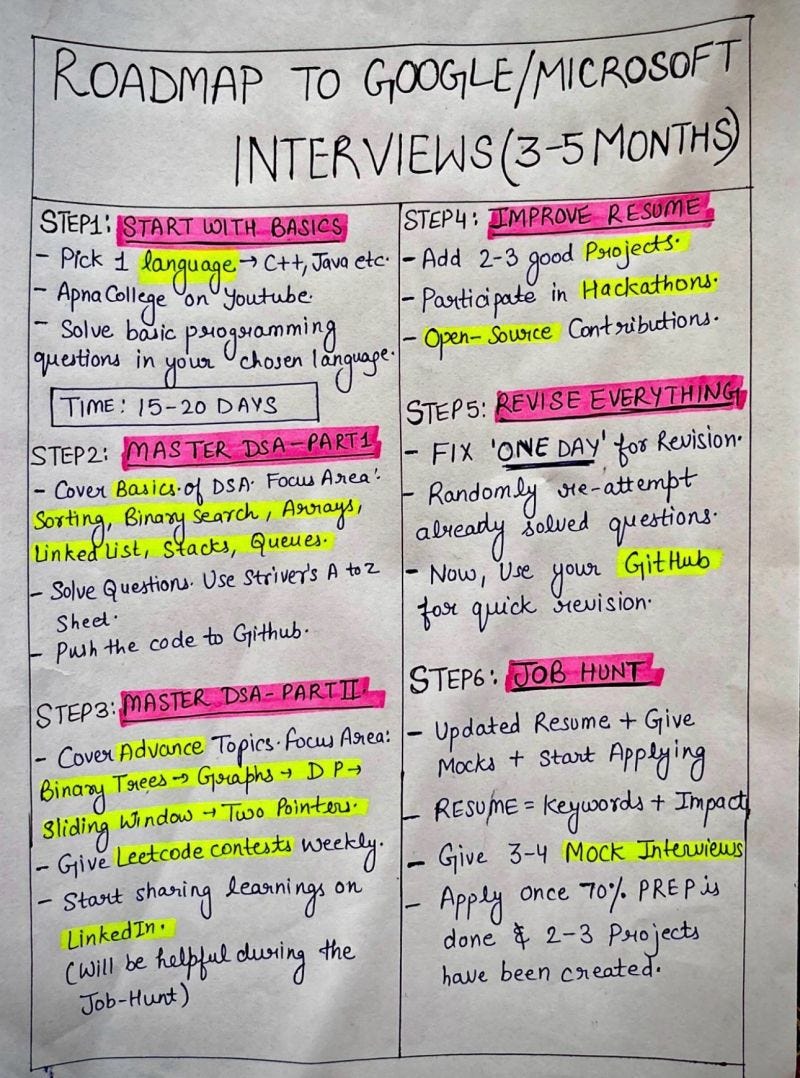 ROADMAP TO GOOGLE/MICROSOFT
INTERVIEWS (3-5 MONTHS)
STEP1: START WITH BASICS
- Pick 1 language → C++, Java etc.
- Apna College on Youtube.
- Solve basic programming
questions in your chosen language.
TIME: 15-20 DAYS
STEP2: MASTER DSA-PART1
- Cover Basics of DSA. Focus Area:
Sorting, Binary Search, Arrays,
Linked List, Stacks, Queues.
- Solve Questions. Use Striver's A to Z
Sheet.
- Push the code to Github.
STEP3: MASTER DSA-PART II
- Cover Advance Topics. Focus Area:
Binary Trees → Graphs → DP →
Sliding Window → Two Pointers.
- Give Leetcode contests weekly.
- Start sharing learnings on
LinkedIn.
(Will be helpful during the
Job-Hunt)
STEP4: IMPROVE RESUME
- Add 2-3 good Projects.
- Participate in Hackathons.
- Open-Source Contributions.
STEP5: REVISE EVERYTHING
- FIX 'ONE DAY' for Revision.
- Randomly re-attempt
already solved questions.
- Now, Use your GitHub
for quick revision.
STEP6: JOB HUNT
- Updated Resume + Give
Mocks + Start Applying
- RESUME = Keywords + Impact
- Give 3-4 Mock Interviews
- Apply once 70% PREP is
done & 2-3 Projects
have been created.